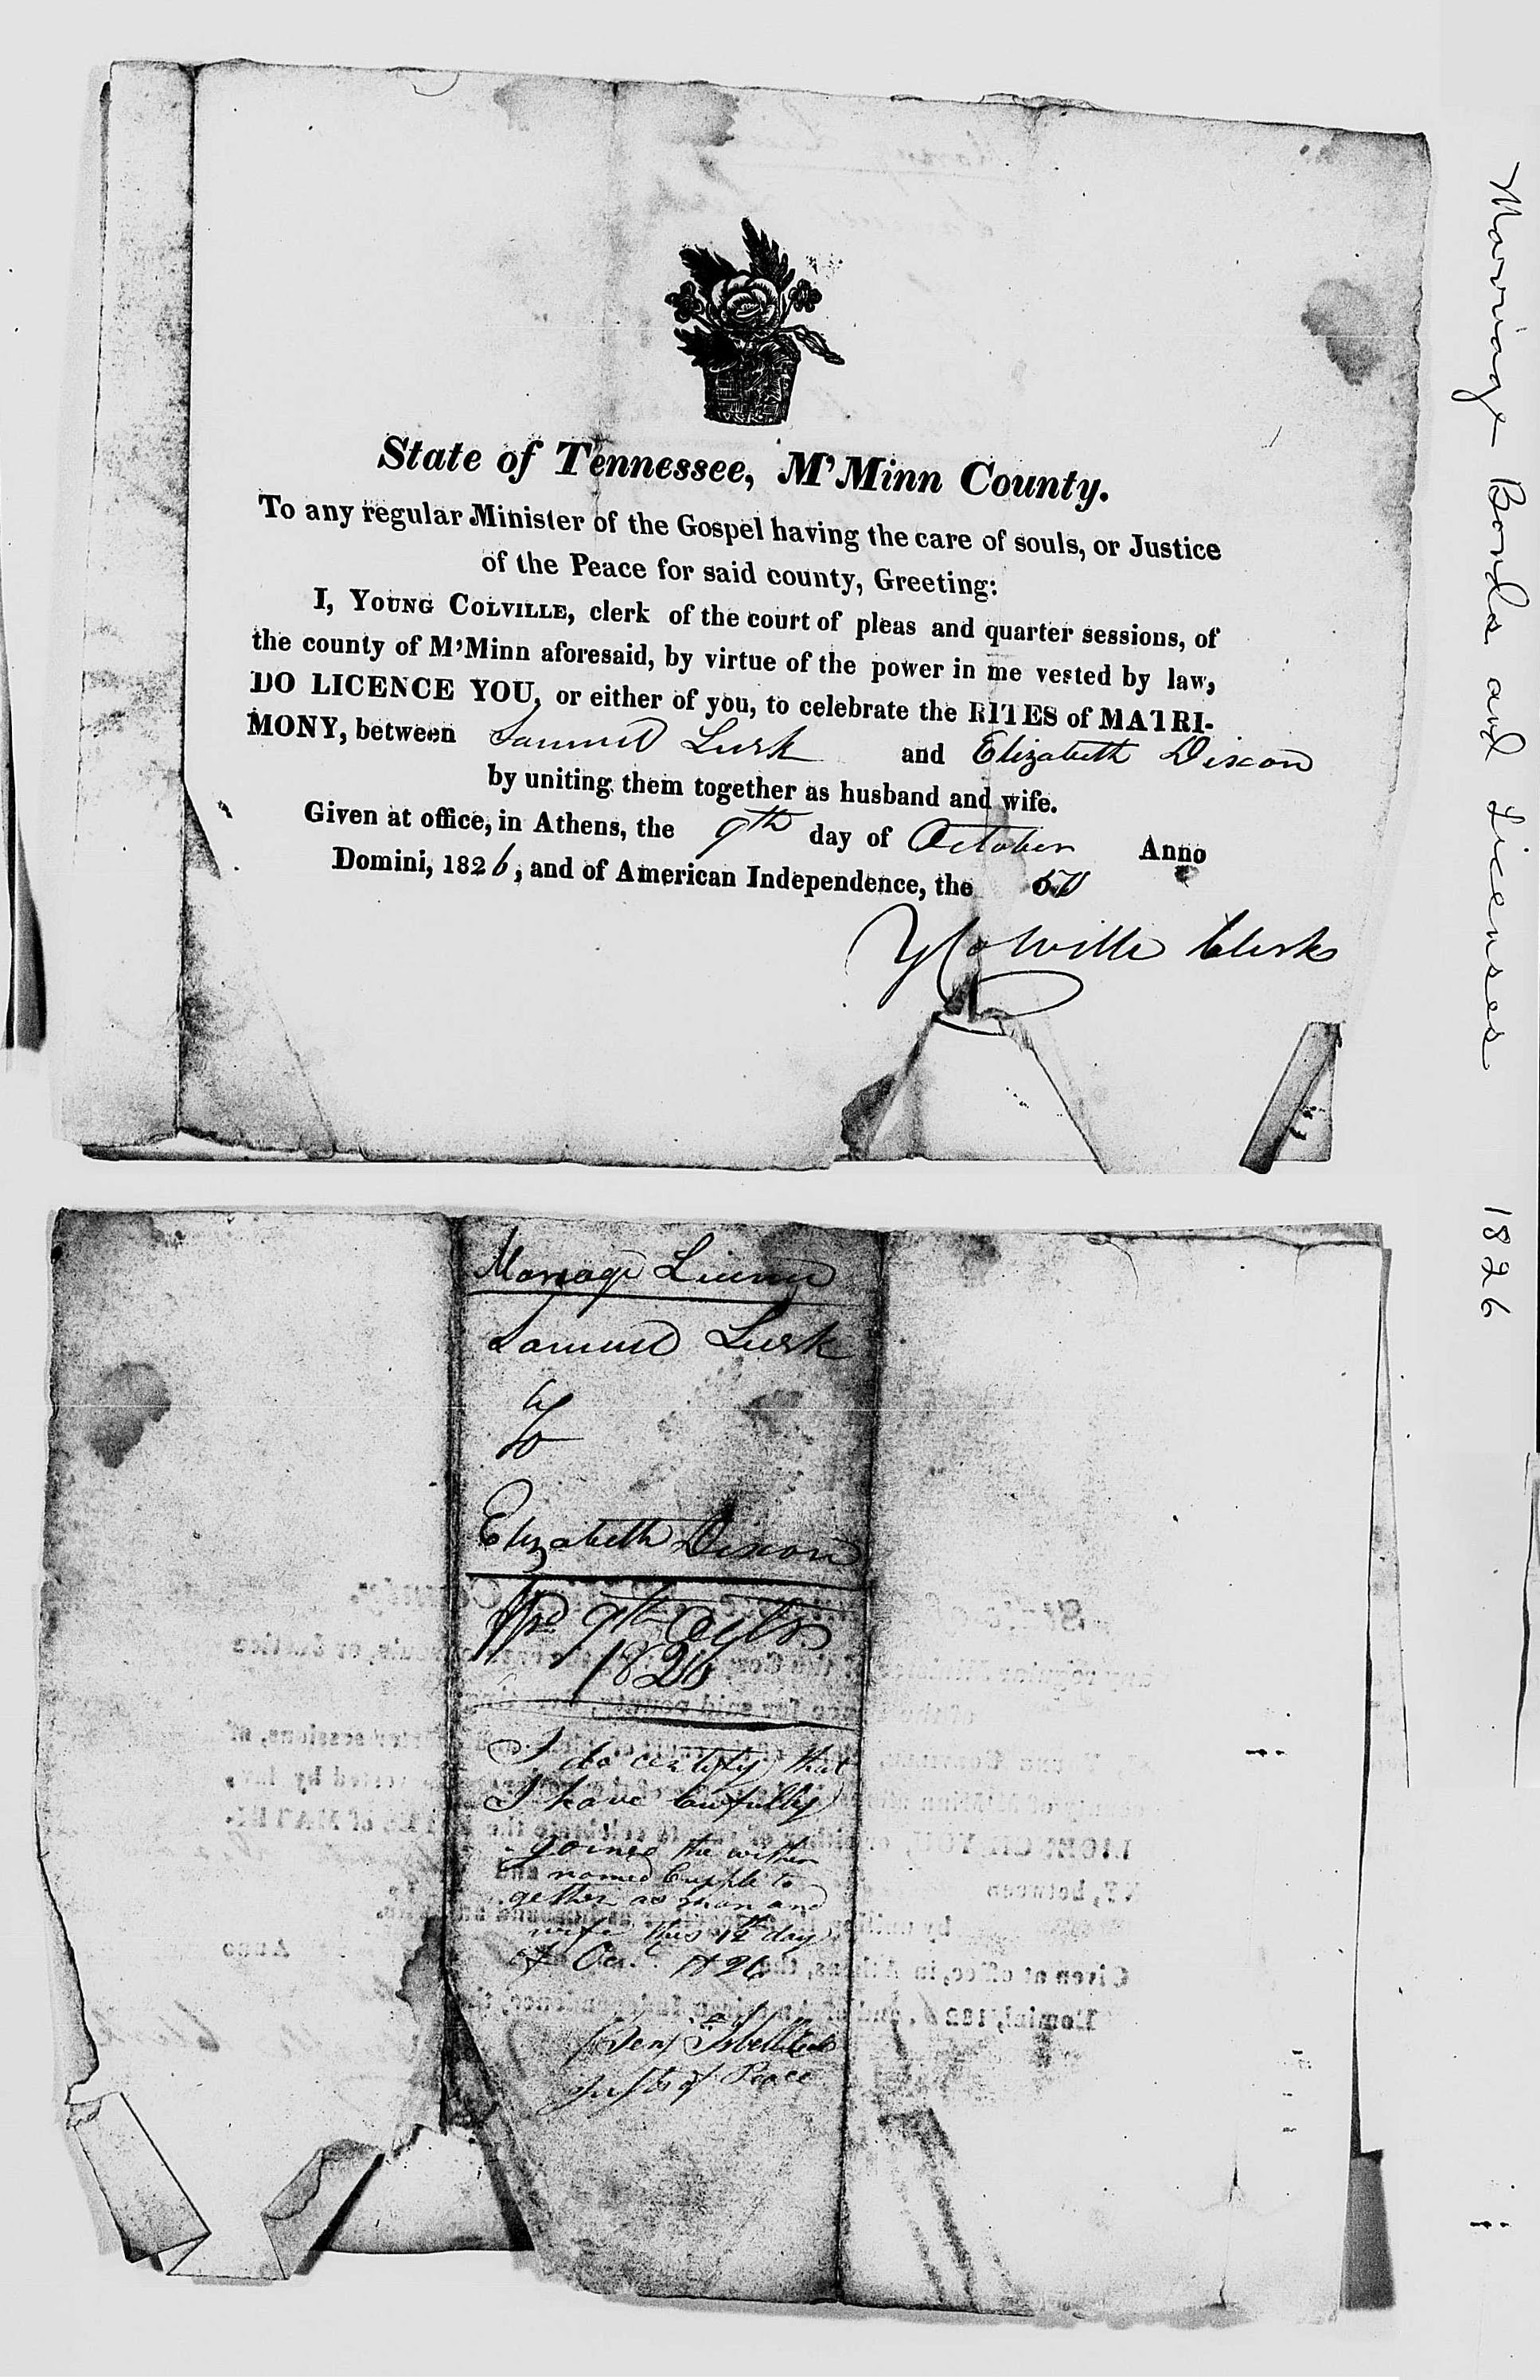 State of Tennessee, M'Minn County.
To any regular Minister of the Gospel having the care of souls, or Justice
of the Peace for said county, Greeting:
I, YOUNG COLVILLE, clerk of the court of pleas and quarter sessions, of
the county of M'Minn aforesaid, by virtue of the power in me vested by law,
DO LICENCE YOU, or either of you, to celebrate the RITES of MATRI-
MONY, between Samuel Lusk and Elizabeth Dixon
by uniting them together as husband and wife.
Given at office, in Athens, the 9th day of October Anno
Domini, 1826, and of American Independence, the
Y Colville Clerk
Marriage Bonds and Licenses 1826
Marriage License
Samuel Lusk
to
Elizabeth Dixon
9th
1826
I do certify that
I have lawfully
joined the within
named Cupple to
gether as man and
wife this 12th day
of Oct. 1826
Benj Isbell
Just of Peace